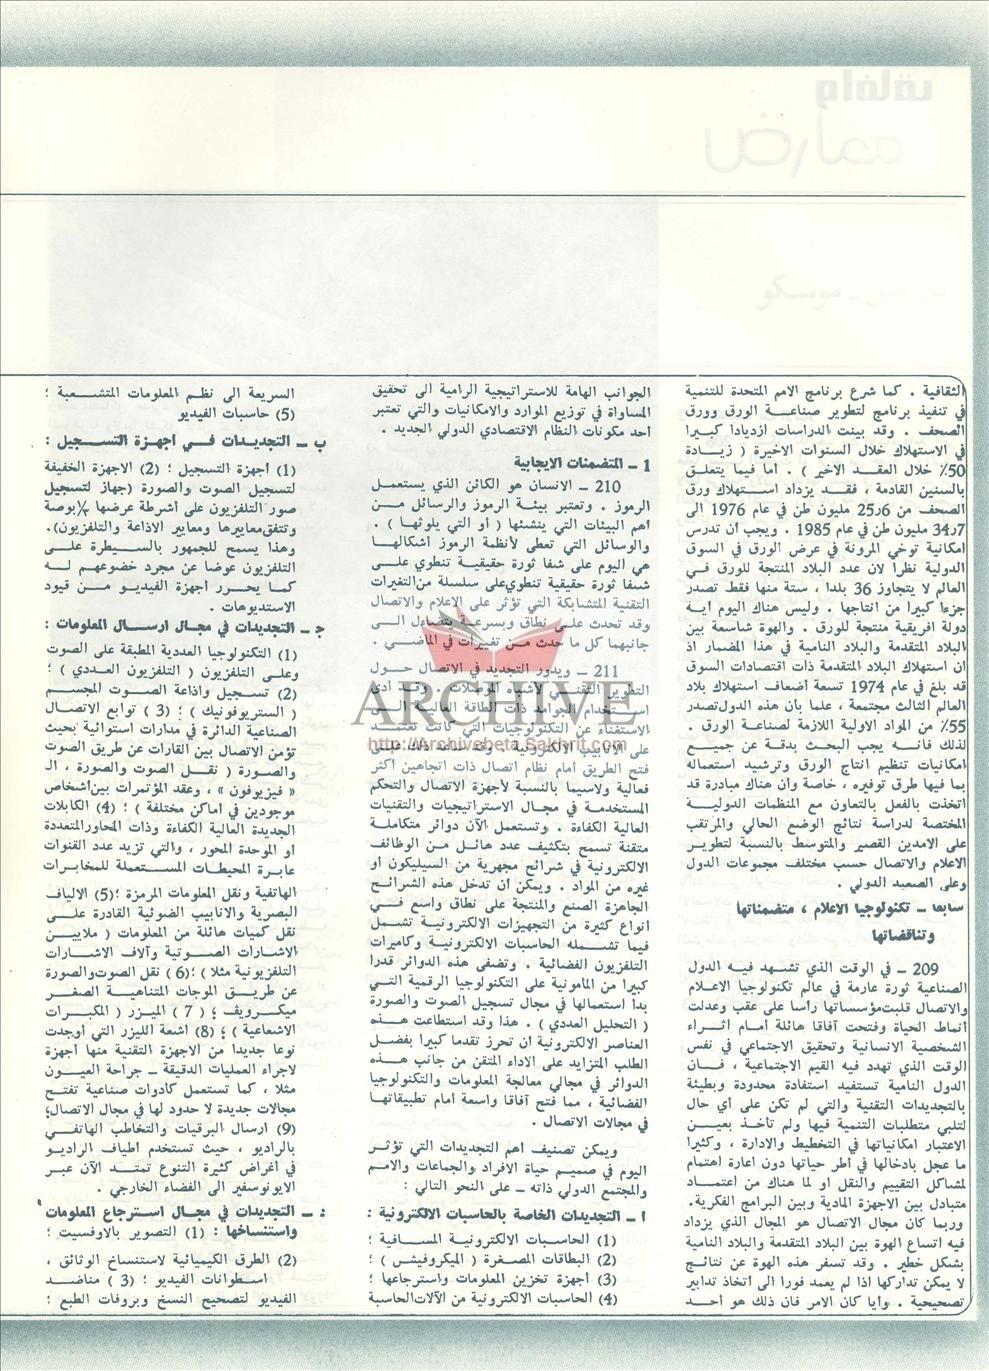 الثقافية . كما شرع برنامج الامم المتحدة للتنمية
في تنفيذ برنامج لتطوير صناعة الورق وورق
الصحف . وقد بينت الدراسات ازديادا كبيرا
في الاستهلاك خلال السنوات الاخيرة ( زيادة
50٪ خلال العقد الاخير ) . اما فيما يتعلق
بالسنين القادمة ، فقد يزداد استهلاك ورق
الصحف من 25٫6 مليون طن في عام 1976 الى
34٫7 مليون طن في عام 1985 . ويجب ان تدرس
امكانية توخي المرونة في عرض الورق في السوق
الدولية نظرا لان عدد البلاد المنتجة للورق في
العالم لا يتجاوز 36 بلدا ، ستة منها فقط تصدر
جزءا كبيرا من انتاجها . وليس هناك اليوم اية
دولة افريقية منتجة للورق . والهوة شاسعة بين
البلاد المتقدمة والبلاد النامية في هذا المضمار اذ
ان استهلاك البلاد المتقدمة ذات اقتصادات السوق
قد بلغ في عام 1974 تسعة أضعاف استهلاك بلاد
العالم الثالث مجتمعة ، علما بان هذه الدول تصدر
55٪ من المواد الاولية اللازمة لصناعة الورق .
لذلك فانه يجب البحث بدقة عن جميع
امكانيات تنظيم انتاج الورق وترشيد استعماله
بما فيها طرق توفيره ، خاصة وان هناك مبادرة قد
اتخذت بالفعل بالتعاون مع المنظمات الدولية
المختصة لدراسة نتائج الوضع الحالي والمرتقب
على الامدين القصير والمتوسط بالنسبة لتطوير
الاعلام والاتصال حسب مختلف مجموعات الدول
وعلى الصعيد الدولي .
سابعا ــ تكنولوجيا الاعلام ، متضمناتها
وتناقضاتها
209 ــ في الوقت الذي تشهد فيه الدول
الصناعية ثورة عارمة في عالم تكنولوجيا الاعلام
والاتصال قلبت مؤسساتها رأسا على عقب وعدلت
أنماط الحياة وفتحت آفاقا هائلة أمام اثراء
الشخصية الانسانية وتحقيق الاجتماعي في نفس
الوقت الذي تهدد فيه القيم الاجتماعية ، فان
الدول النامية تستفيد استفادة محدودة وبطيئة
بالتجديدات التقنية والتي لم تكن على أي حال
لتلبي متطلبات التنمية فيها ولم تأخذ بعين
الاعتبار امكانياتها في التخطيط والادارة ، وكثيرا
ما عجل بادخالها في أطر حياتها دون اعارة اهتمام
لمشاكل التقييم والنقل او لما هناك من اعتماد
متبادل بين الاجهزة المادية وبين البرامج الفكرية.
وربما كان مجال الاتصال هو المجال الذي يزداد
فيه اتساع الهوة بين البلاد المتقدمة والبلاد النامية
بشكل خطير . وقد تسفر هذه الهوة عن نتائج
لا يمكن تداركها اذا لم يعمد فورا الى اتخاذ تدابير
تصحيحية . وأيا كان الامر فان ذلك هو أحد
الجوانب الهامة للاستراتيجية الرامية الى تحقيق
المساواة في توزيع الموارد والامكانيات والتي تعتبر
احد مكونات النظام الاقتصادي الدولي الجديد .
1 ــ المتضمنات الايجابية
210 ــ الانسان هو الكائن الذي يستعمل
الرموز . وتعتبر بيئة الرموز والرسائل من
اهم البيئات التي ينشئها ( أو التي يلوثها ) .
والوسائل التي تعطى لأنظمة الرموز أشكالها
هي اليوم على شفا ثورة حقيقية تنطوي على
شفا ثورة حقيقية تنطوي على سلسلة من التغيرات
التقنية المتشابكة التي تؤثر على الاعلام والاتصال
وقد تحدث على نطاق وبسرعة يتضاءل الى
جانبهما كل ما حدث من تغييرات في الماضي .
211 ــ ويدور التجديد في الاتصال حول
التطوير التقني لأشباه الموصلات . وقد أدى
استخدام الجوامد ذات الطاقة العالية الى
الاستغناء عن التكنولوجيات التي كانت تعتمد
على الانابيب الالكترونية وقد ساعد ذلك على
فتح الطريق امام نظام اتصال ذات اتجاهين اكثر
فعالية ولاسيما بالنسبة لأجهزة الاتصال والتحكم
المستخدمة في مجال الاستراتيجيات والتقنيات
العالية الكفاءة . وتستعمل الآن دوائر متكاملة
متقنة تسمح بتكثيف عدد هائل من الوظائف
الالكترونية في شرائح مجهرية من السيليكون أو
غيره من المواد . ويمكن ان تدخل هذه الشرائح
الجاهزة الصنع والمنتجة على نطاق واسع في
انواع كثيرة من التجهيزات الالكترونية تشمل
فيما تشمله الحاسبات الالكترونية وكاميرات
التلفزيون الفضائية . وتضفى هذه الدوائر قدرا
كبيرا من المأمونية على التكنولوجيا الرقمية التي
بدأ استعمالها في مجال تسجيل الصوت والصورة
( التحليل العددي ) . هذا وقد استطاعت هذه
العناصر الالكترونية ان تحرز تقدما كبيرا بفضل
الطلب المتزايد على الاداء المتقن من جانب هذه
الدوائر في مجالي معالجة المعلومات والتكنولوجيا
الفضائية ، مما فتح آفاقا واسعة امام تطبيقاتها
في مجالات الاتصال .
ويمكن تصنيف اهم التجديدات التي تؤثر
اليوم في صميم حياة الافراد والجماعات والامم
والمجتمع الدولي ذاته ــ على النحو التالي :
أ ــ التجديدات الخاصة بالحاسبات الالكترونية :
(1) الحاسبات الالكترونية المسافية ؛
(2) البطاقات المصغرة ( الميكروفيش ) ؛
(3) أجهزة تخزين المعلومات واسترجاعها ؛
(4) الحاسبات الالكترونية من الآلات الحاسبة
السريعة الى نظم المعلومات المتشعبة ؛
(5) حاسبات الفيديو
ب ــ التجديدات في اجهزة التسجيل :
(1) أجهزة التسجيل ؛ (2) الاجهزة الخفيفة
لتسجيل الصوت والصورة (جهاز لتسجيل
صور التلفزيون على أشرطة عرضها بوصة
وتتفق معاييرها ومعايير الاذاعة والتلفزيون).
وهذا يسمح للجمهور بالسيطرة على
التلفزيون عوضا عن مجرد خضوعهم له
كما يحرر أجهزة الفيديو من قيود
الاستديوهات .
جـ ــ التجديدات في مجال ارسال المعلومات :
(1) التكنولوجيا العددية المطبقة على الصوت
وعلى التلفزيون ( التلفزيون العددي ) ؛
(2) تسجيل واذاعة الصوت المجسم
( الستريوفونيك ) ؛ (3) توابع الاتصال
الصناعية الدائرة في مدارات استوائية بحيث
تؤمن الاتصال بين القارات عن طريق الصوت
والصورة ( نقل الصوت والصورة ، الـ
« فيزيوفون » ، وعقد المؤتمرات بين اشخاص
موجودين في اماكن مختلفة ) ؛ (4) الكابلات
الجديدة العالية الكفاءة وذات المحاور المتعددة
او الموحدة المحور ، والتي تزيد عدد القنوات
عابرة المحيطات المستعملة للمخابرات
الهاتفية ونقل المعلومات المرمزة ؛ (5) الالياف
البصرية والانابيب الضوئية القادرة على
نقل كميات هائلة من المعلومات ( ملايين
الاشارات الصوتية وآلاف الاشارات
التلفزيونية مثلا ) ؛ (6) نقل الصوت والصورة
عن طريق الموجات المتناهية الصغر
ميكرويف ؛ (7) الميزر ( المكبرات
الاشعاعية ) ؛ (8) اشعة الليزر التي اوجدت
نوعا جديدا من الاجهزة التقنية منها اجهزة
لاجراء العمليات الدقيقة ــ جراحة العيون
مثلا ، كما تستعمل كأدوات صناعية تفتح
مجالات جديدة لا حدود لها في مجال الاتصال؛
(9) ارسال البرقيات والتخاطب الهاتفي
بالراديو ، حيث تستخدم اطياف الراديو
في أغراض كثيرة التنوع تمتد الآن عبر
الايونوسفير الى الفضاء الخارجي .
د ــ التجديدات في مجال استرجاع المعلومات
واستنساخها : (1) التصوير بالاوفسيت ؛
(2) الطرق الكيميائية لاستنساخ الوثائق ،
اسطوانات الفيديو ؛ (3) مناضد
الفيديو لتصحيح النسخ وبروفات الطبع ؛
ARCHIVE
http://Archivebeta.Sakhrit.com